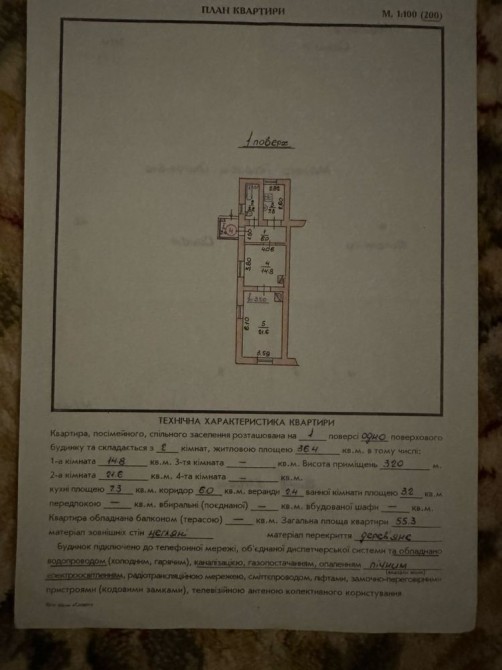 ПЛАН КВАРТИРИ М. 1:100 (200)
1 поверх
2.85
7.3
1.80
1.50
1
6.0
4.06
3.80
4
14.8
h=3.20
5
21.6
6.20
3.59
ТЕХНІЧНА ХАРАКТЕРИСТИКА КВАРТИРИ
Квартира, посімейного, спільного заселення розташована на 1 поверсі одно поверхового
будинку та складається з 2 кімнат, житловою площею 36.4 кв.м. в тому числі:
1-а кімната 14.8 кв.м. 3-тя кімната — кв.м. Висота приміщень 3.20 м.
2-а кімната 21.6 кв.м. 4-та кімната — кв.м.
кухні площею 7.3 кв.м. коридор 6.0 кв.м. веранди 2.4 ванної кімнати площею 3.2 кв.м
передпокою — кв.м. вбиральні (поєднаної) — кв.м. вбудованої шафи — кв.м.
Квартира обладнана балконом (терасою) — кв.м. Загальна площа квартири 55.3
матеріал зовнішніх стін матеріал перекриття деревяне
Будинок підключено до телефонної мережі, об'єднаної диспетчерської системи та обладнано
водопроводом (холодним, гарячим), каналізацією, газопостачанням, опаленням
електроосвітленням, радіотрансляційною мережею, сміттєпроводом, ліфтами, замочно-переговорними
пристроями (кодовими замками), телевізійною антеною колективного користування.